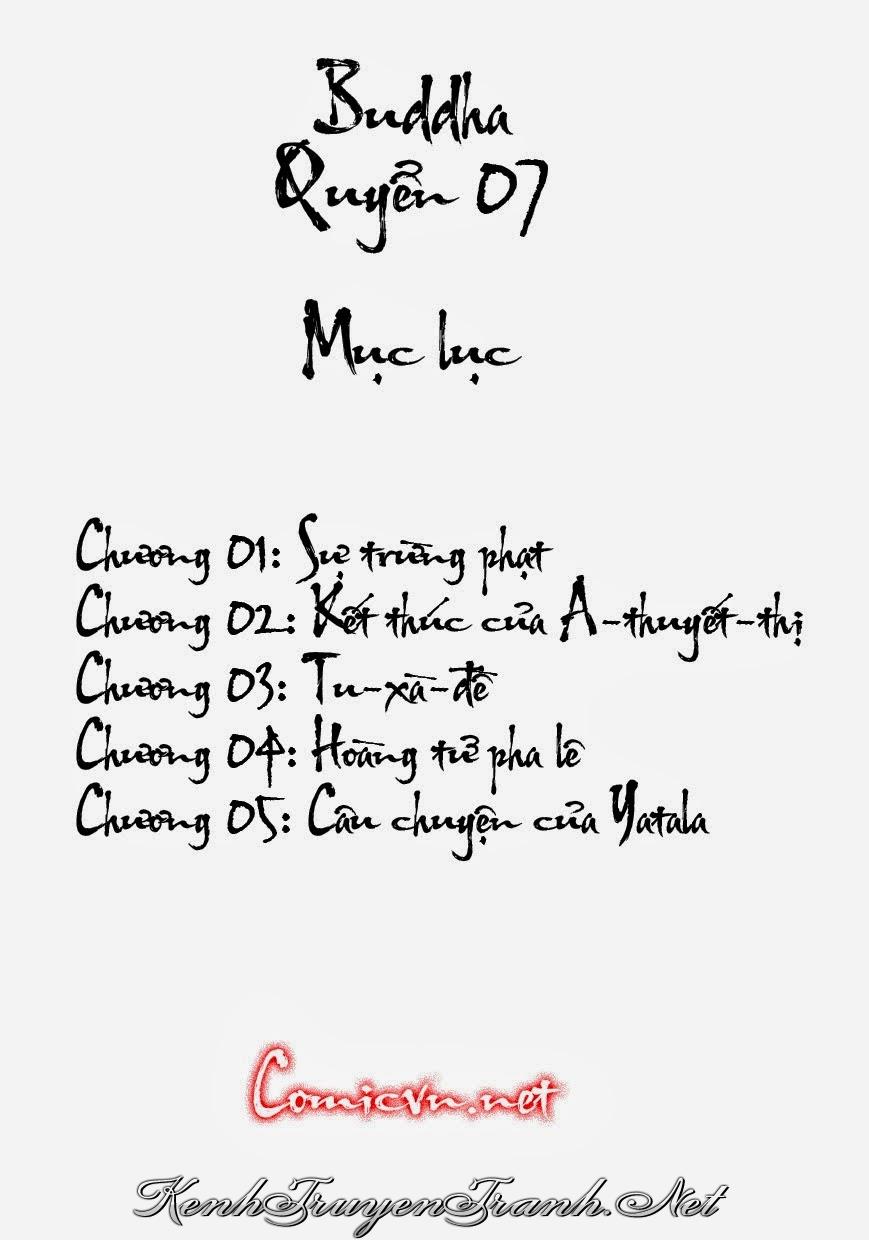 Buddha
Quyển 07
Mục lục
Chương 01: Sự trừng phạt
Chương 02: Kết thúc của A-thuyết-thị
Chương 03: Tu-xà-đề
Chương 04: Hoàng tử pha lê
Chương 05: Câu chuyện của Yatala
Comicvn.net
KenhTruyenTranh.Net